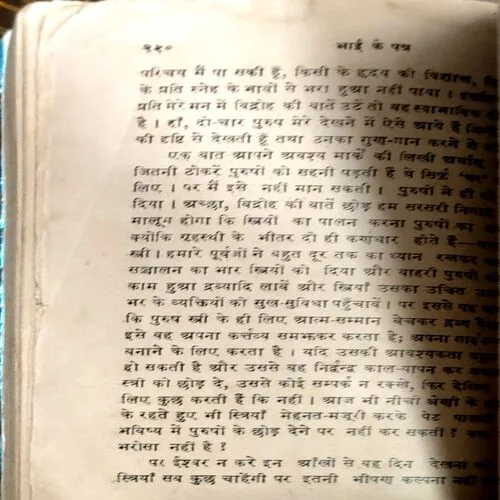 १५० भाई के पत्र
परिचय मैं पा सकी हूँ, किसी के हृदय को विशाल,
के प्रति स्नेह के भावों से भरा हुआ नहीं पाया ।
प्रति मेरे मन में विद्रोह की बातें उठें तो वह स्वाभाविक
है । हाँ, दो-चार पुरुष मेरे देखने में ऐसे आये हैं
की दृष्टि से देखती हूँ तथा उनका गुण-गान करने में
एक बात आपने अवश्य मार्के की लिखी अर्थात्
जितनी ठोकरें पुरुषों को सहनी पड़ती हैं वे सिर्फ़
लिए । पर मैं इसे नहीं मान सकती । पुरुषों ने ही
दिया । अच्छा, विद्रोह की बातें छोड़ हम सरसरी
मालूम होगा कि स्त्रियों का पालन करना पुरुषों का
क्योंकि गृहस्थी के भीतर दो ही कर्णधार होते हैं—
स्त्री । हमारे पूर्वजों ने बहुत दूर तक का ध्यान रखकर
सञ्चालन का भार स्त्रियों को दिया और बाहरी पुरुषों
काम हुआ द्रव्यादि लावें और स्त्रियाँ उसका उचित
भर के व्यक्तियों को सुख-सुविधा पहुँचावें । पर इससे यह
कि पुरुष स्त्री के ही लिए आत्म-सम्मान बेचकर द्रव्य
इसे वह अपना कर्त्तव्य समझकर करता है; अपना
बनाने के लिए करता है । यदि उसकी आवश्यकता
हो सकती है और उससे वह निर्द्वन्द्व काल-यापन कर
स्त्री को छोड़ दे, उससे कोई सम्पर्क न रक्खे, फिर
लिए कुछ करती हैं कि नहीं । आज भी नीची श्रेणी के
के रहते हुए भी स्त्रियाँ मेहनत-मजूरी करके पेट
भविष्य में पुरुषों के छोड़ देने पर नहीं कर सकतीं ?
भरोसा नहीं है ?
पर ईश्वर न करे इन आँखों से वह दिन देखना
स्त्रियाँ सब कुछ चाहेंगी पर इतनी भीषण कल्पना नहीं